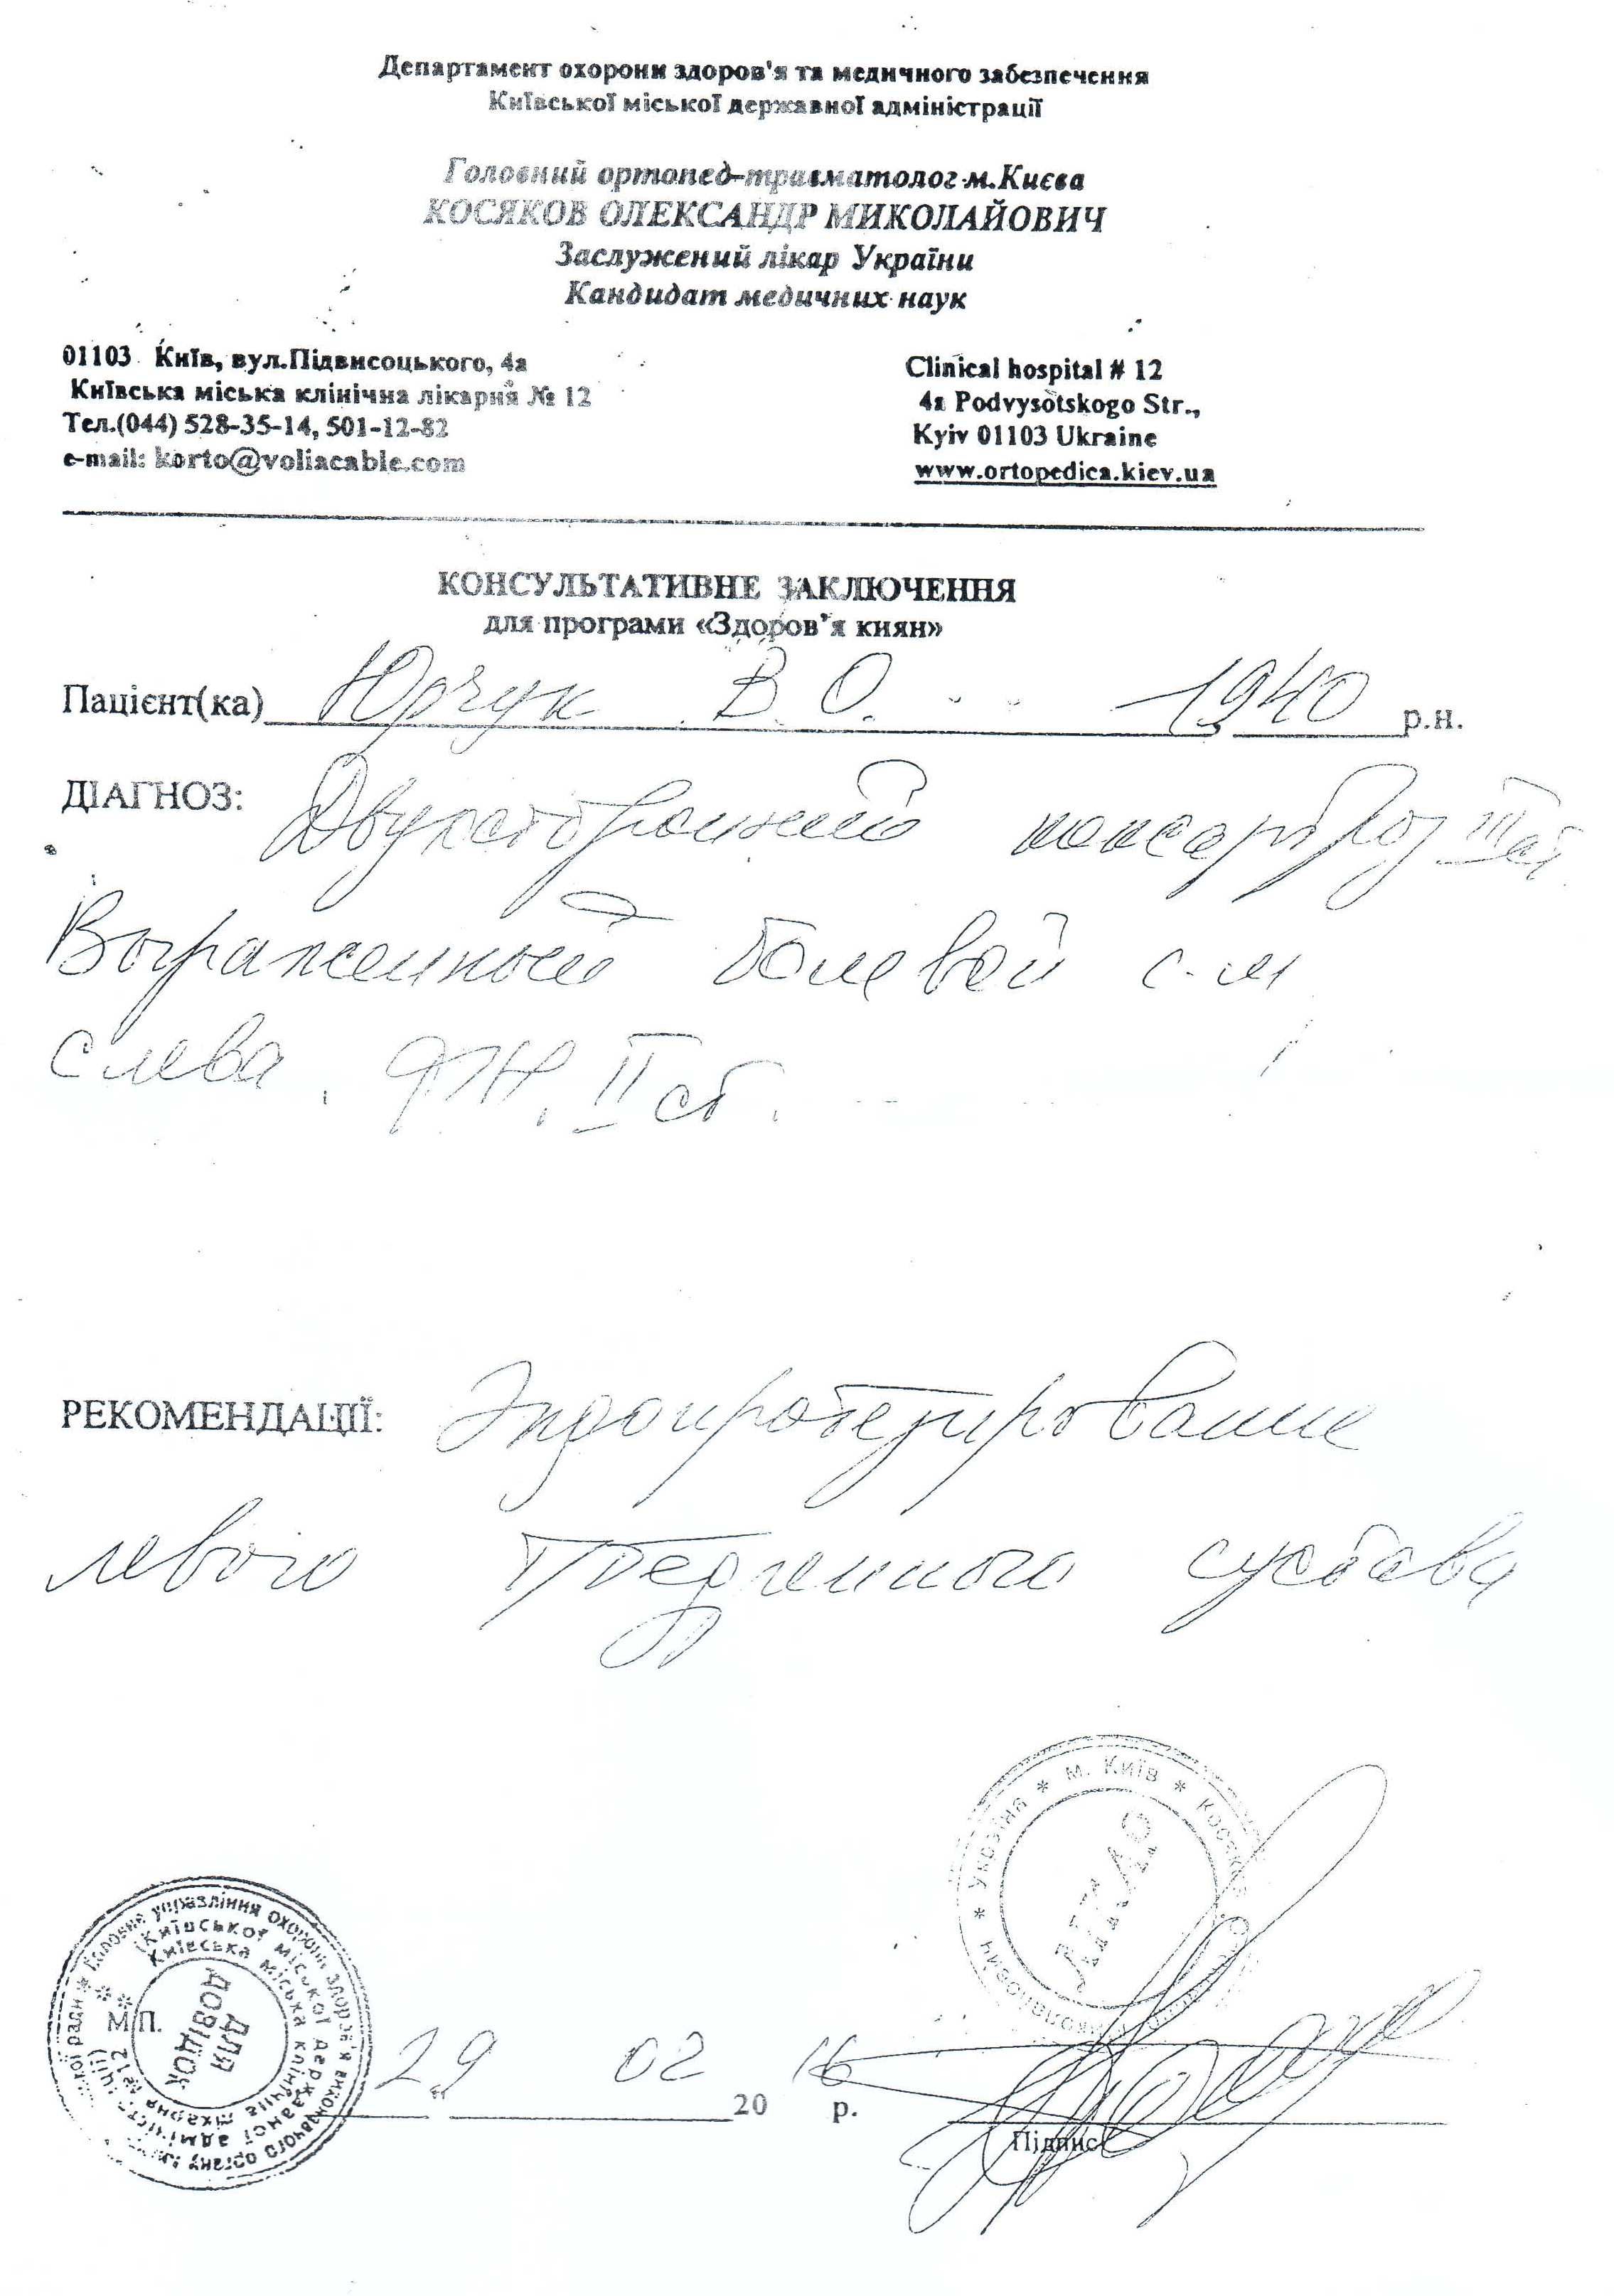 Департамент охорони здоров'я та медичного забезпечення
Київської міської державної адміністрації
Головний ортопед-травматолог м.Києва
КОСЯКОВ ОЛЕКСАНДР МИКОЛАЙОВИЧ
Заслужений лікар України
Кандидат медичних наук
01103 Київ, вул.Підвисоцького, 4а
Київська міська клінічна лікарня № 12
Тел.(044) 528-35-14, 501-12-82
e-mail: korto@voliacable.com
Clinical hospital # 12
4a Podvysotskogo Str.,
Kyiv 01103 Ukraine
www.ortopedica.kiev.ua
КОНСУЛЬТАТИВНЕ ЗАКЛЮЧЕННЯ
для програми «Здоров'я киян»
Пацієнт(ка) Юрчук В. О. 1940 р.н.
ДІАГНОЗ: Двухсторонний коксартроз III ст.
Выраженный болевой с-м
слева. ФН. II ст.
РЕКОМЕНДАЦІЇ: Эндопротезирование
левого тазобедренного сустава
Україна * м. Київ *
ЛІКАР
ДЛЯ
ДОВІДОК
М.П.
29 02 2016 р.
Підпис